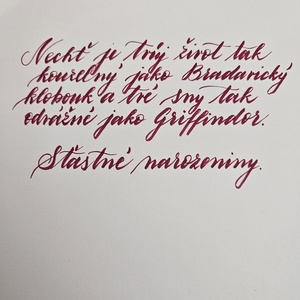 Nechť je tvůj život tak
kouzelný jako Bradavický
klobouk a tvé sny tak
odvážné jako Griffindor.
Šťastné narozeniny.